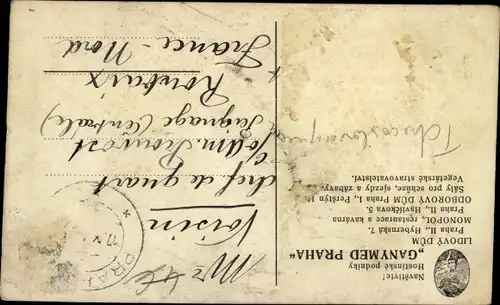 Navštivte!
Hostinské podniky
„GANYMED PRAHA“
LIDOVÝ DŮM
Praha, II., Hybernská 7.
MONOPOL, restaurace a kavárna
Praha, II., Havlíčkova 5.
ODBOROVÝ DŮM Praha I., Perštýn 11.
Sály pro schůze, sjezdy a zábavy.
Vegetárské stravovatelství.
PRAHA
Mr
Voisin
chef de quart
Peignage (Centrale)
Roubaix
France - Nord